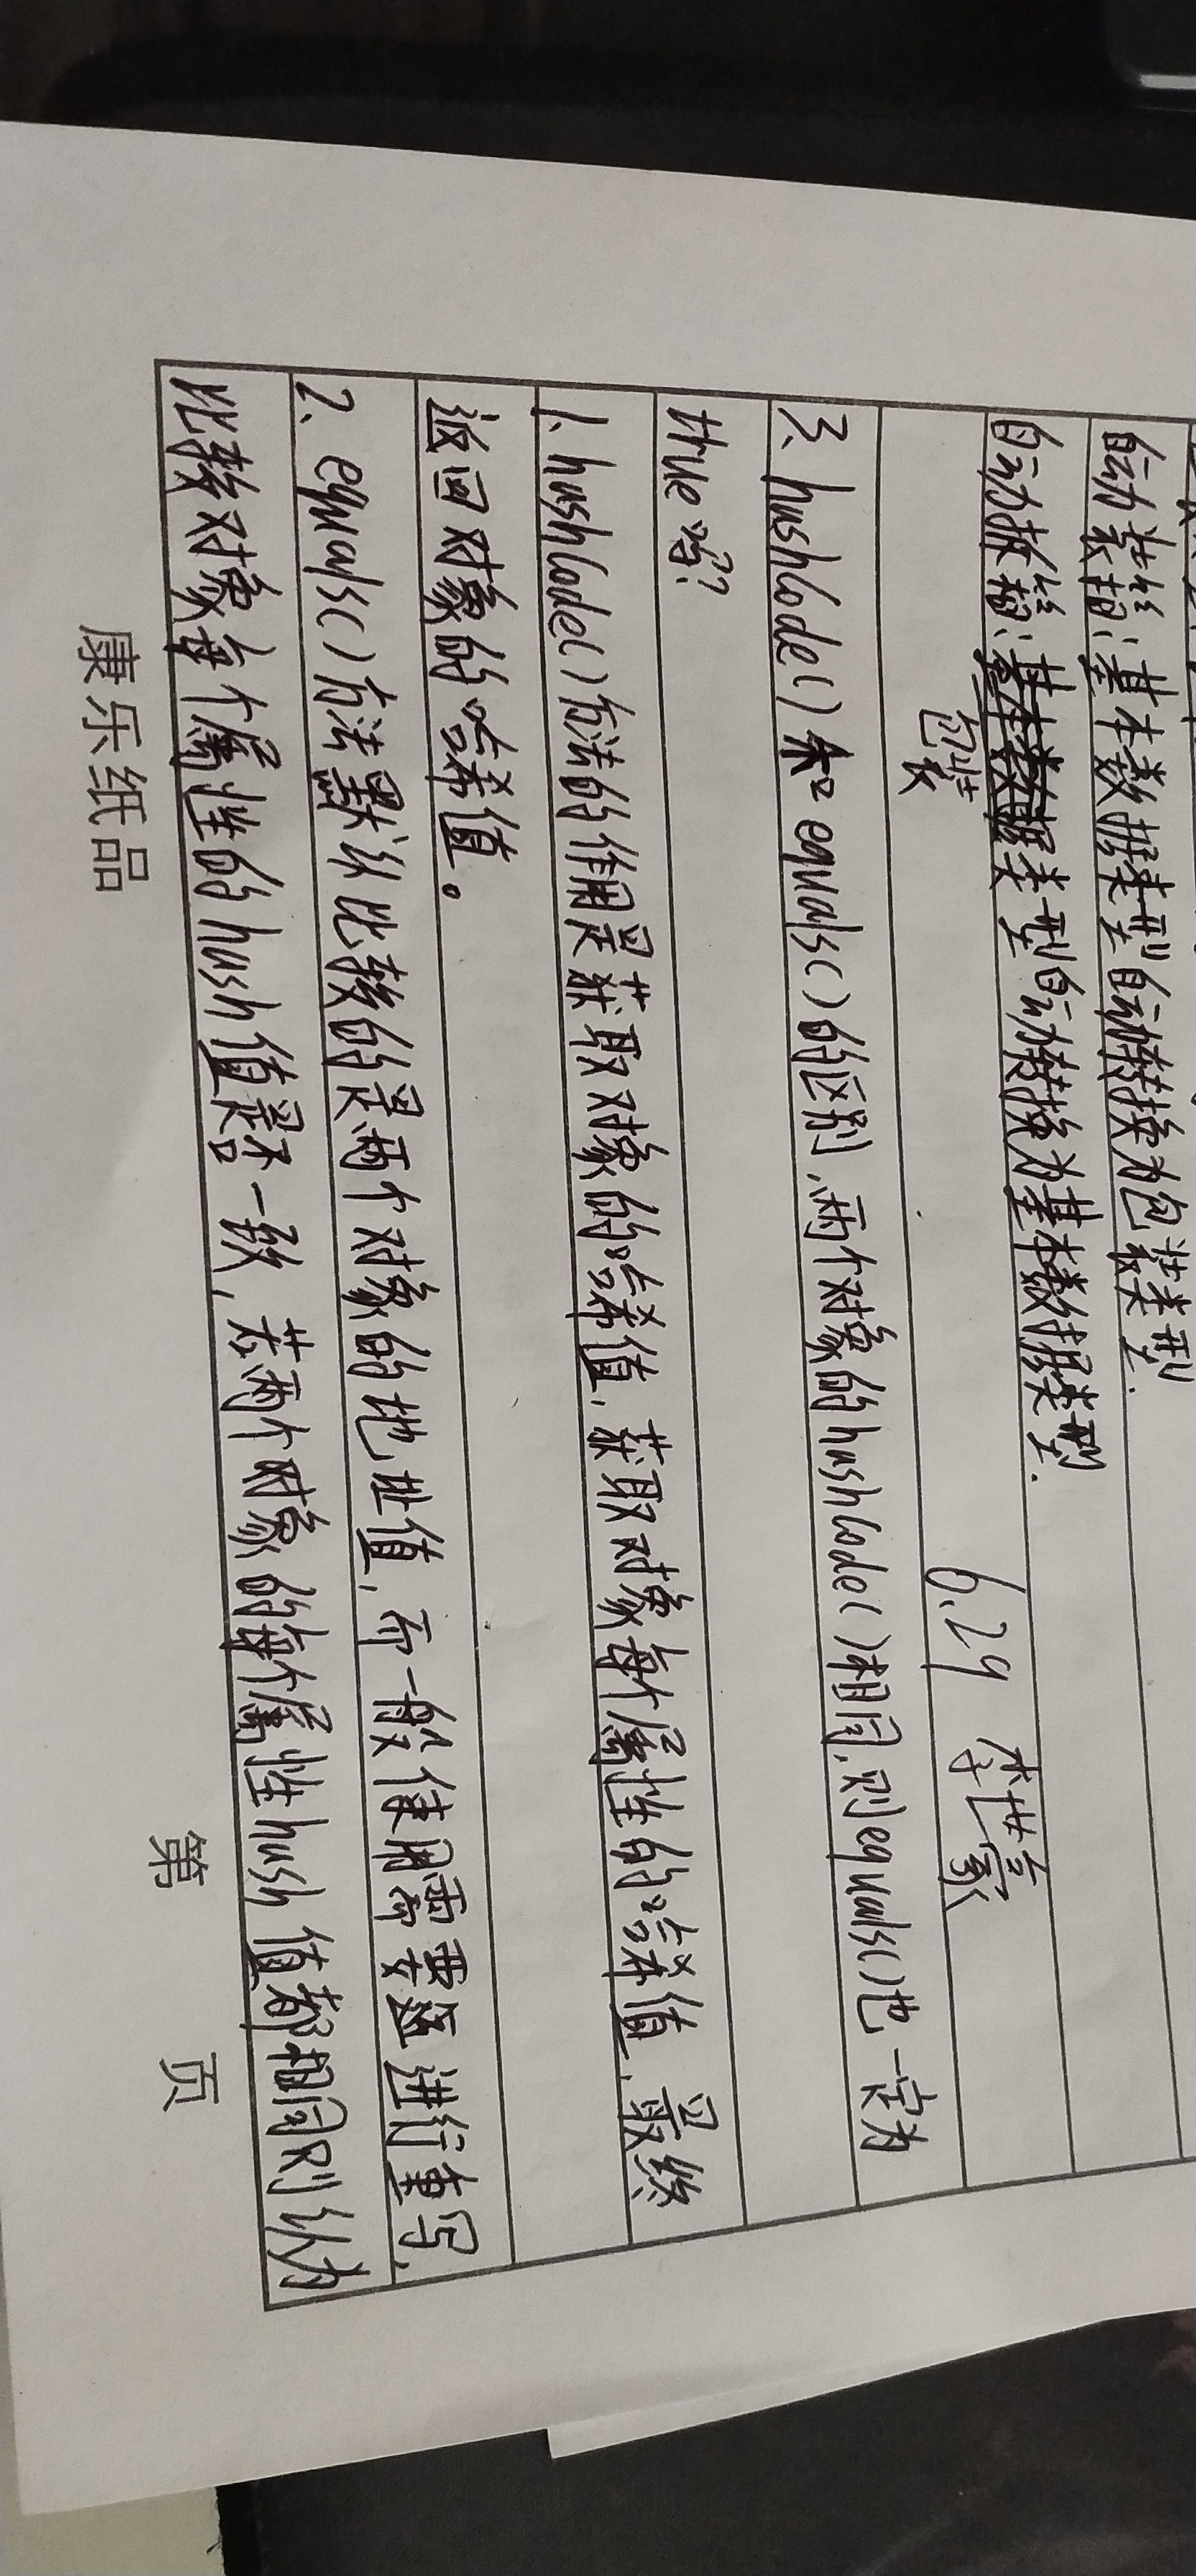 自动装箱:基本数据类型自动转换为包装类型.
自动拆箱:基本数据类型自动转换为基本数据类型.
包装
6.29 李世豪
3、hashCode()和equals()的区别,两个对象的hashCode()相同,则equals()也一定为
true吗?
1、hashCode()方法的作用是获取对象的哈希值,获取对象每个属性的哈希值,最终
返回对象的哈希值。
2、equals()方法默认比较的是两个对象的地址值,而一般使用需要这进行重写,
比较对象每个属性的hash值是否一致,若两个对象的每个属性hash值都相同则认为
康乐纸品 第 页